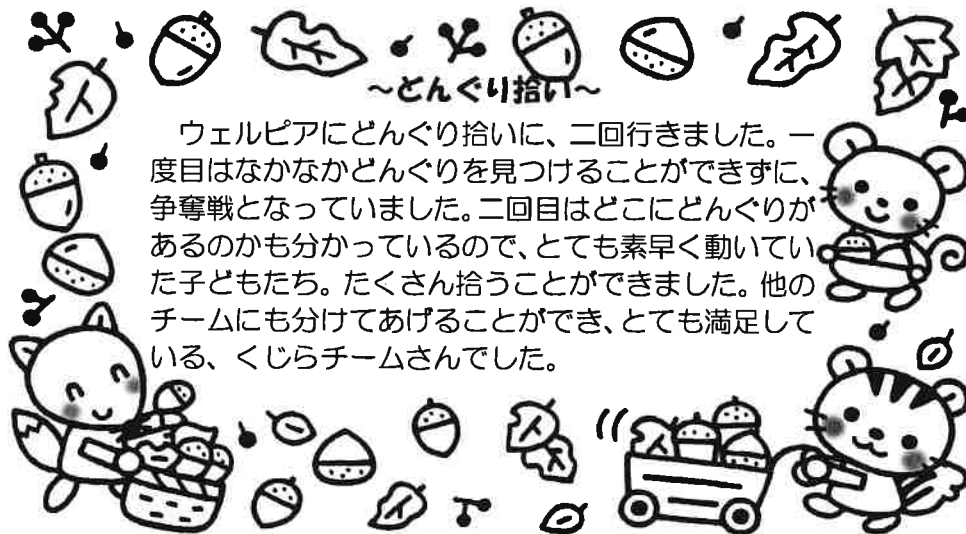 ～どんぐり拾い～
　ウェルピアにどんぐり拾いに、二回行きました。一
度目はなかなかどんぐりを見つけることができずに、
争奪戦となっていました。二回目はどこにどんぐりが
あるのかも分かっているので、とても素早く動いてい
た子どもたち。たくさん拾うことができました。他の
チームにも分けてあげることができ、とても満足して
いる、くじらチームさんでした。